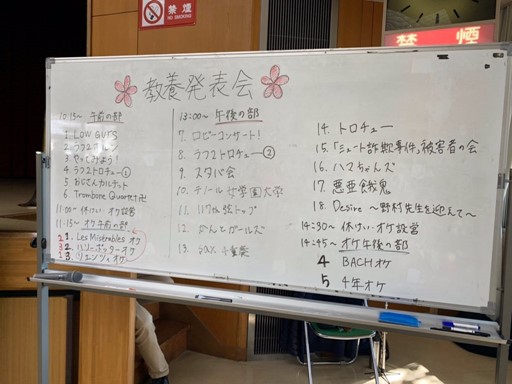 禁煙
NO SMOKING
禁煙
教養発表会
10:15~ 午前の部
1. LOW GUYS
2. ラフ2
3. やってみよう!
4. ラフ2トロチュー①
5. おじさんカルテット
6. Trombone Quartett 卍
11:00~ 休けい・オケ設営
11:15~ オケ午前の部
1. Les Misérables オケ
2. ハリーポッターオケ
3. リエンツィオケ
13:00~ 午後の部
7. ロビーコンサート!
8. ラフ2トロチュー②
9. スタバ会
10. テノール 学園大学
11. 117th 弦トップ
12. がんとガールズ
13. sax 十重奏
14. トロチュー
15. 「ミュート詐欺事件」被害者の会
16. ハマちゃんズ
17. 悪亜餓鬼
18. Desire ~野村先生を迎えて~
14:30~ 休けい・オケ設営
14:45~ オケ午後の部
4 BACHオケ
5 4年オケ